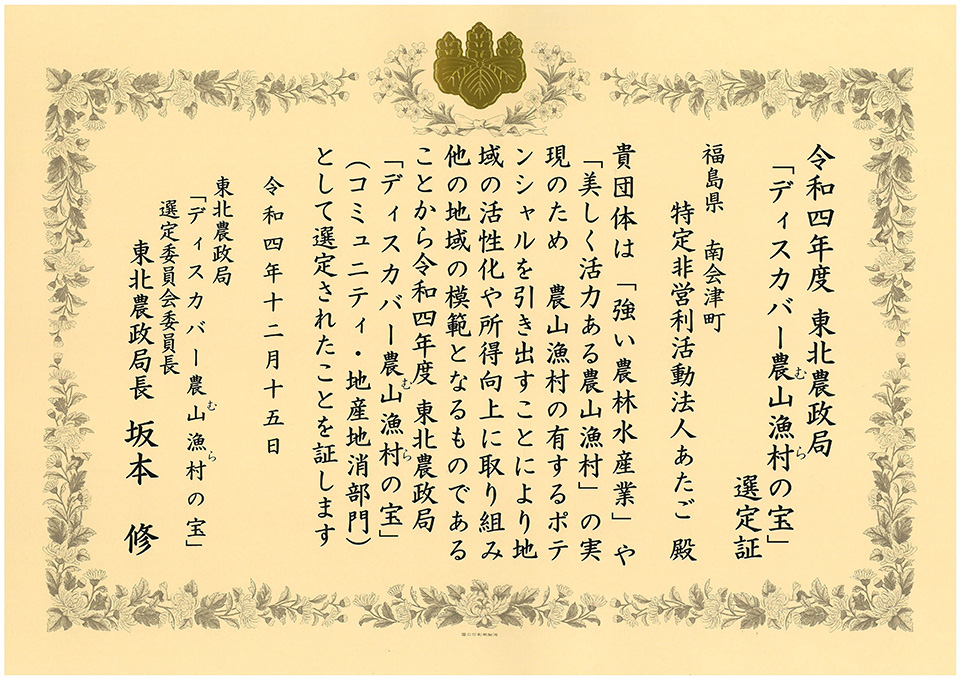 令和四年度 東北農政局
「ディスカバー農山漁村の宝」
むら
選定証
福島県 南会津町
特定非営利活動法人あたご 殿
貴団体は「強い農林水産業」や
「美しく活力ある農山漁村」の実
現のため 農山漁村の有するポテ
ンシャルを引き出すことにより地
域の活性化や所得向上に取り組み
他の地域の模範となるものである
ことから令和四年度 東北農政局
「ディスカバー農山漁村の宝」
むら
(コミュニティ・地産地消部門)
として選定されたことを証します
令和四年十二月十五日
東北農政局
「ディスカバー農山漁村の宝」
むら
選定委員会委員長
東北農政局長 坂本 修